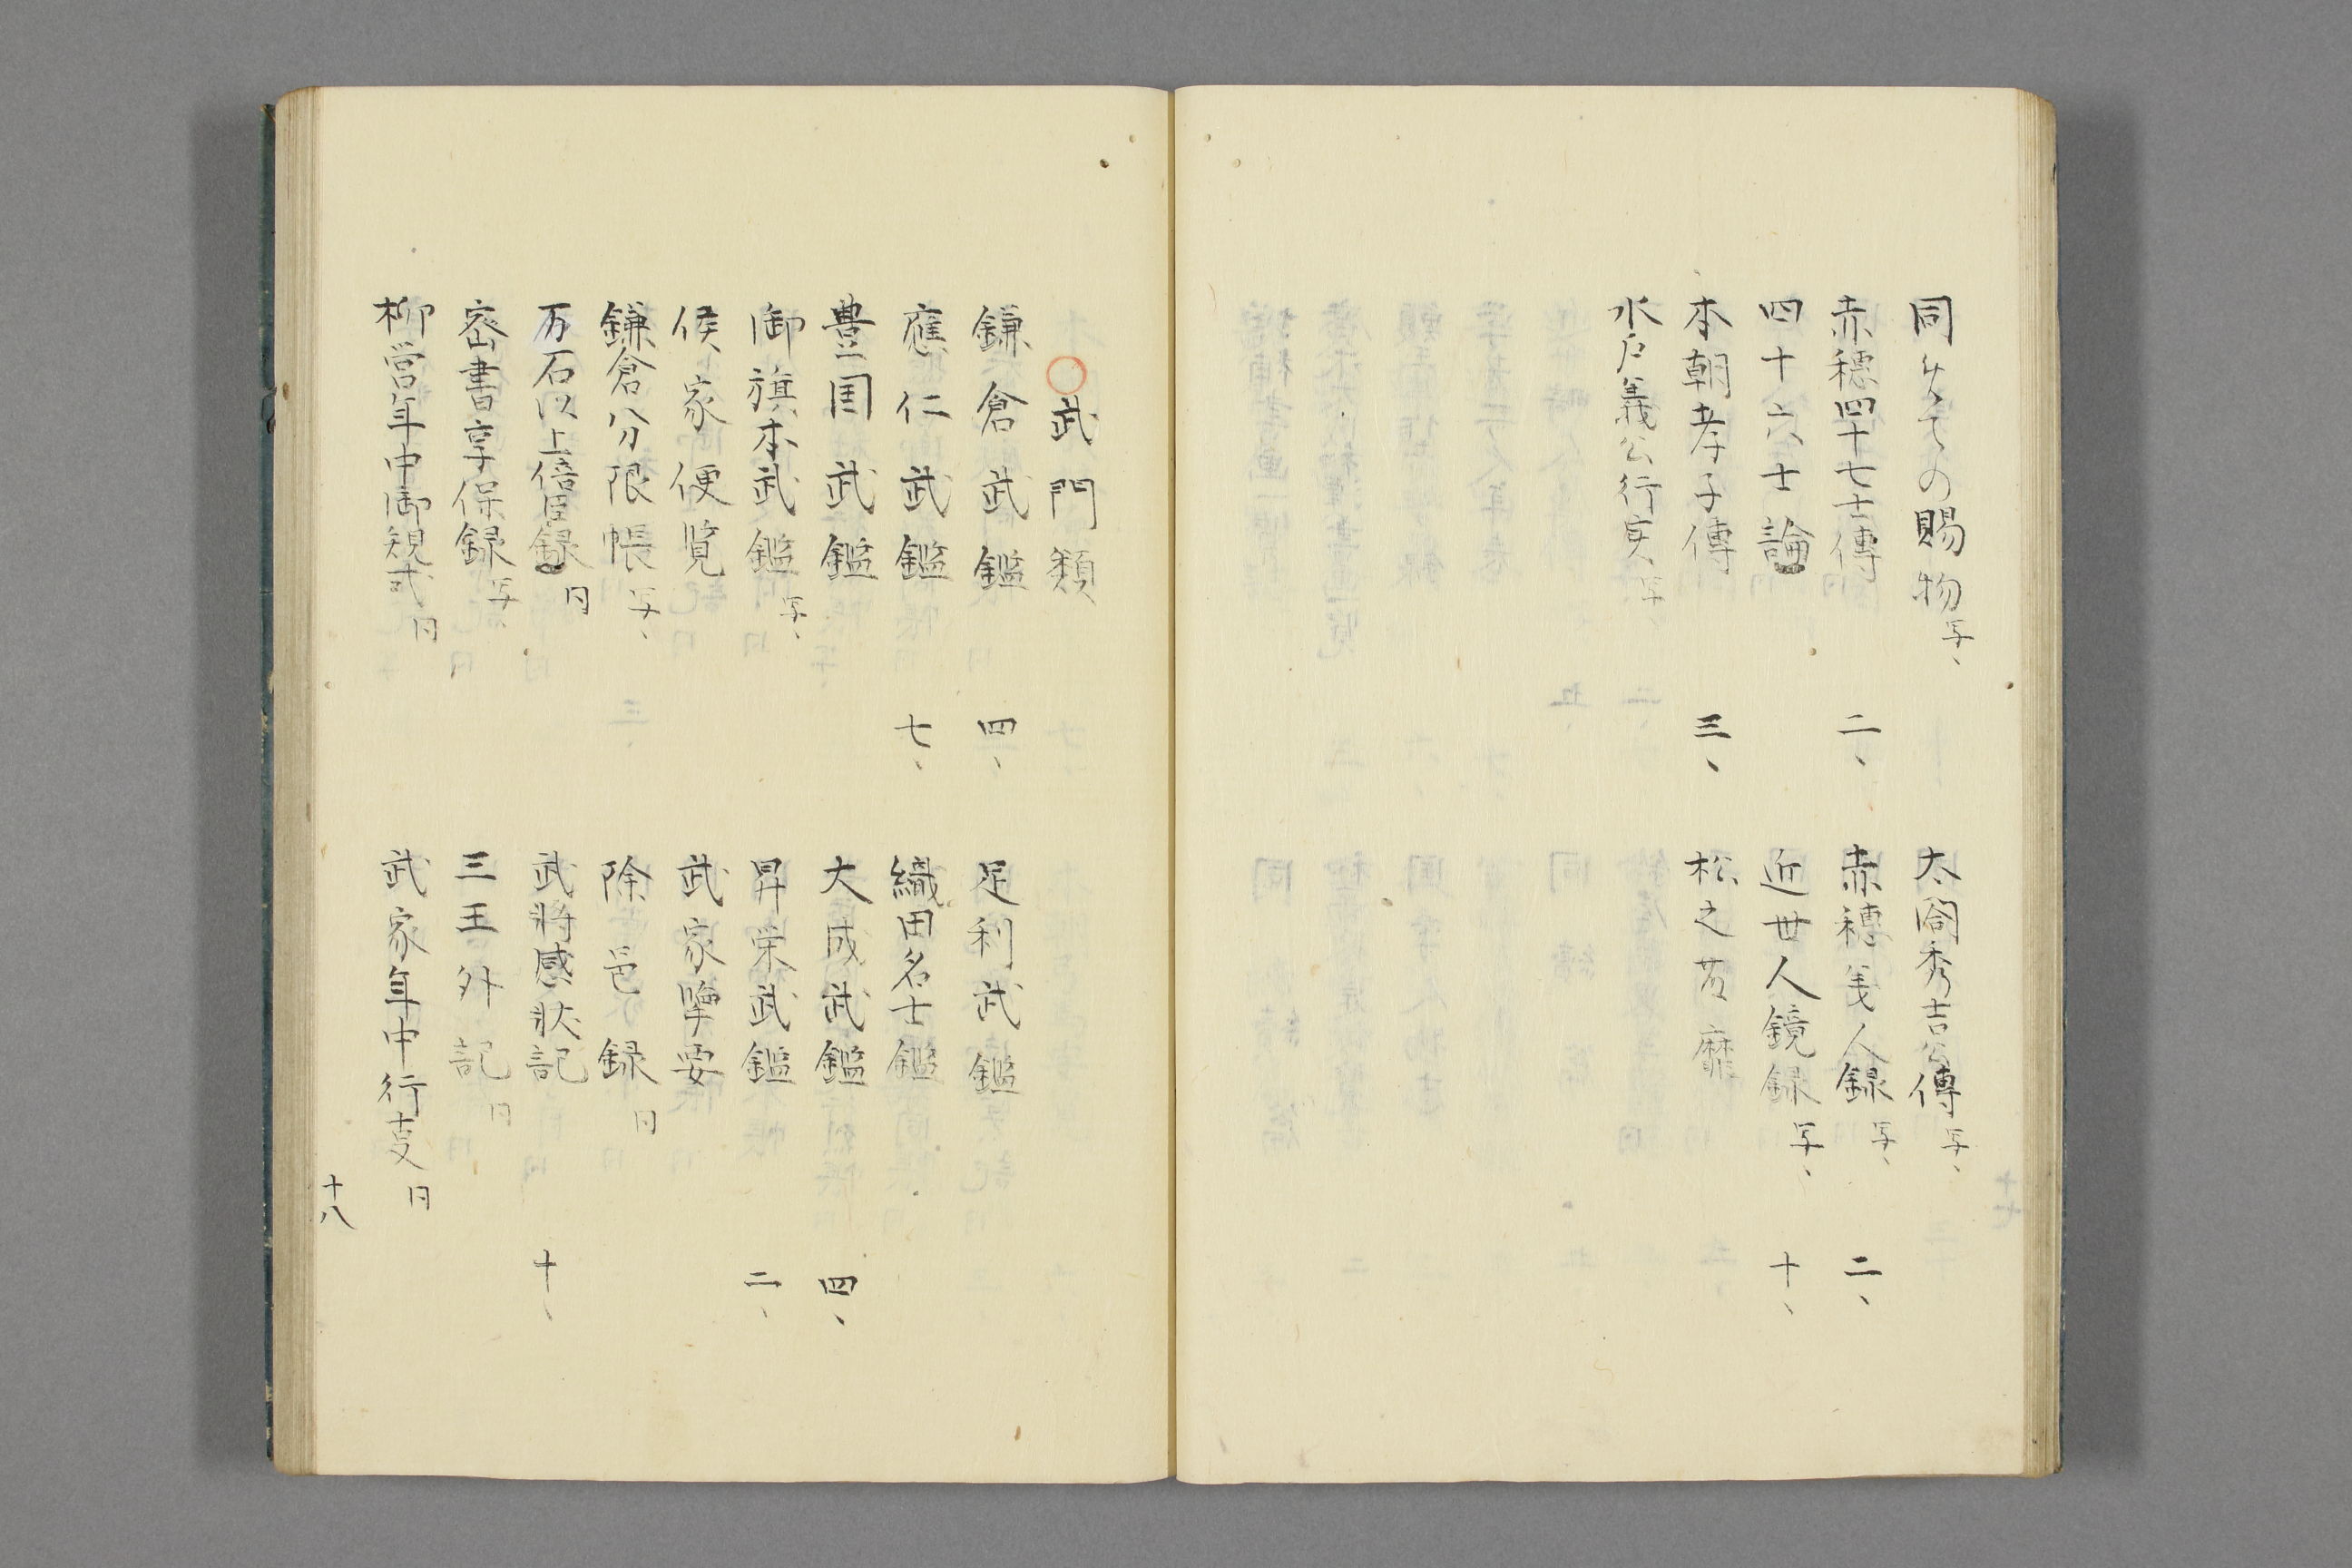 同 の賜物 写、
太閤秀吉公傳 写、
赤穂四十七士傳 二、
赤穂義人録 写、 二、
四十六士論
近世人鏡録 写、 十、
本朝孝子傳 三、
松之 靡
水戸義公行実 写、
○武門類
鎌倉武鑑 四、
足利武鑑
應仁武鑑 七、
織田名士鑑
豊囯武鑑
大成武鑑 四、
御旗本武鑑 写、
昇栄武鑑 二、
侯家便覧
武家擥要
鎌倉分限帳 写、
除邑録 同
万石以上倍臣録 同
武将感状記 十、
密書享保録 写、
三王外記 同
柳営年中御規式 同
武家年中行事 同
十八